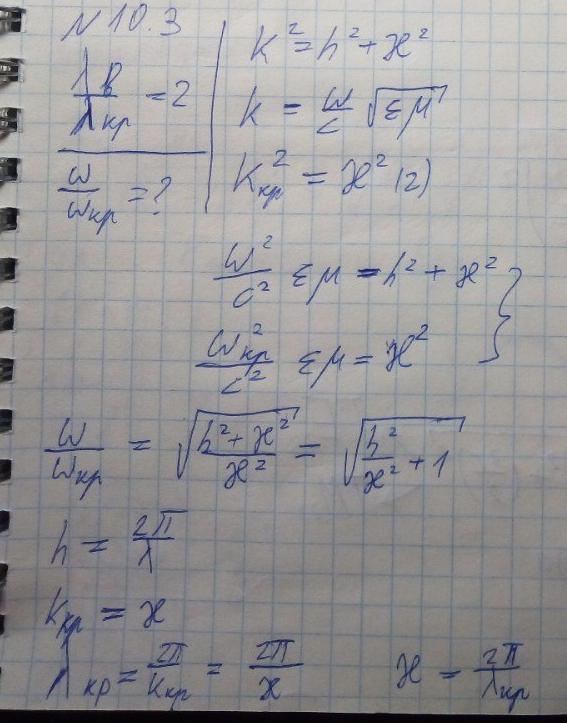 N 10.3
λв/λкр = 2
ω/ωкр = ?
k² = h² + ϰ²
k = ω/c √εμ
Kкр² = ϰ² (2)
ω²/c² εμ = h² + ϰ² }
ωкр²/c² εμ = ϰ²
ω/ωкр = √((h² + ϰ²)/ϰ²) = √(h²/ϰ² + 1)
h = 2π/λ
Kкр = ϰ
λкр = 2π/Kкр = 2π/ϰ    ϰ = 2π/λкр